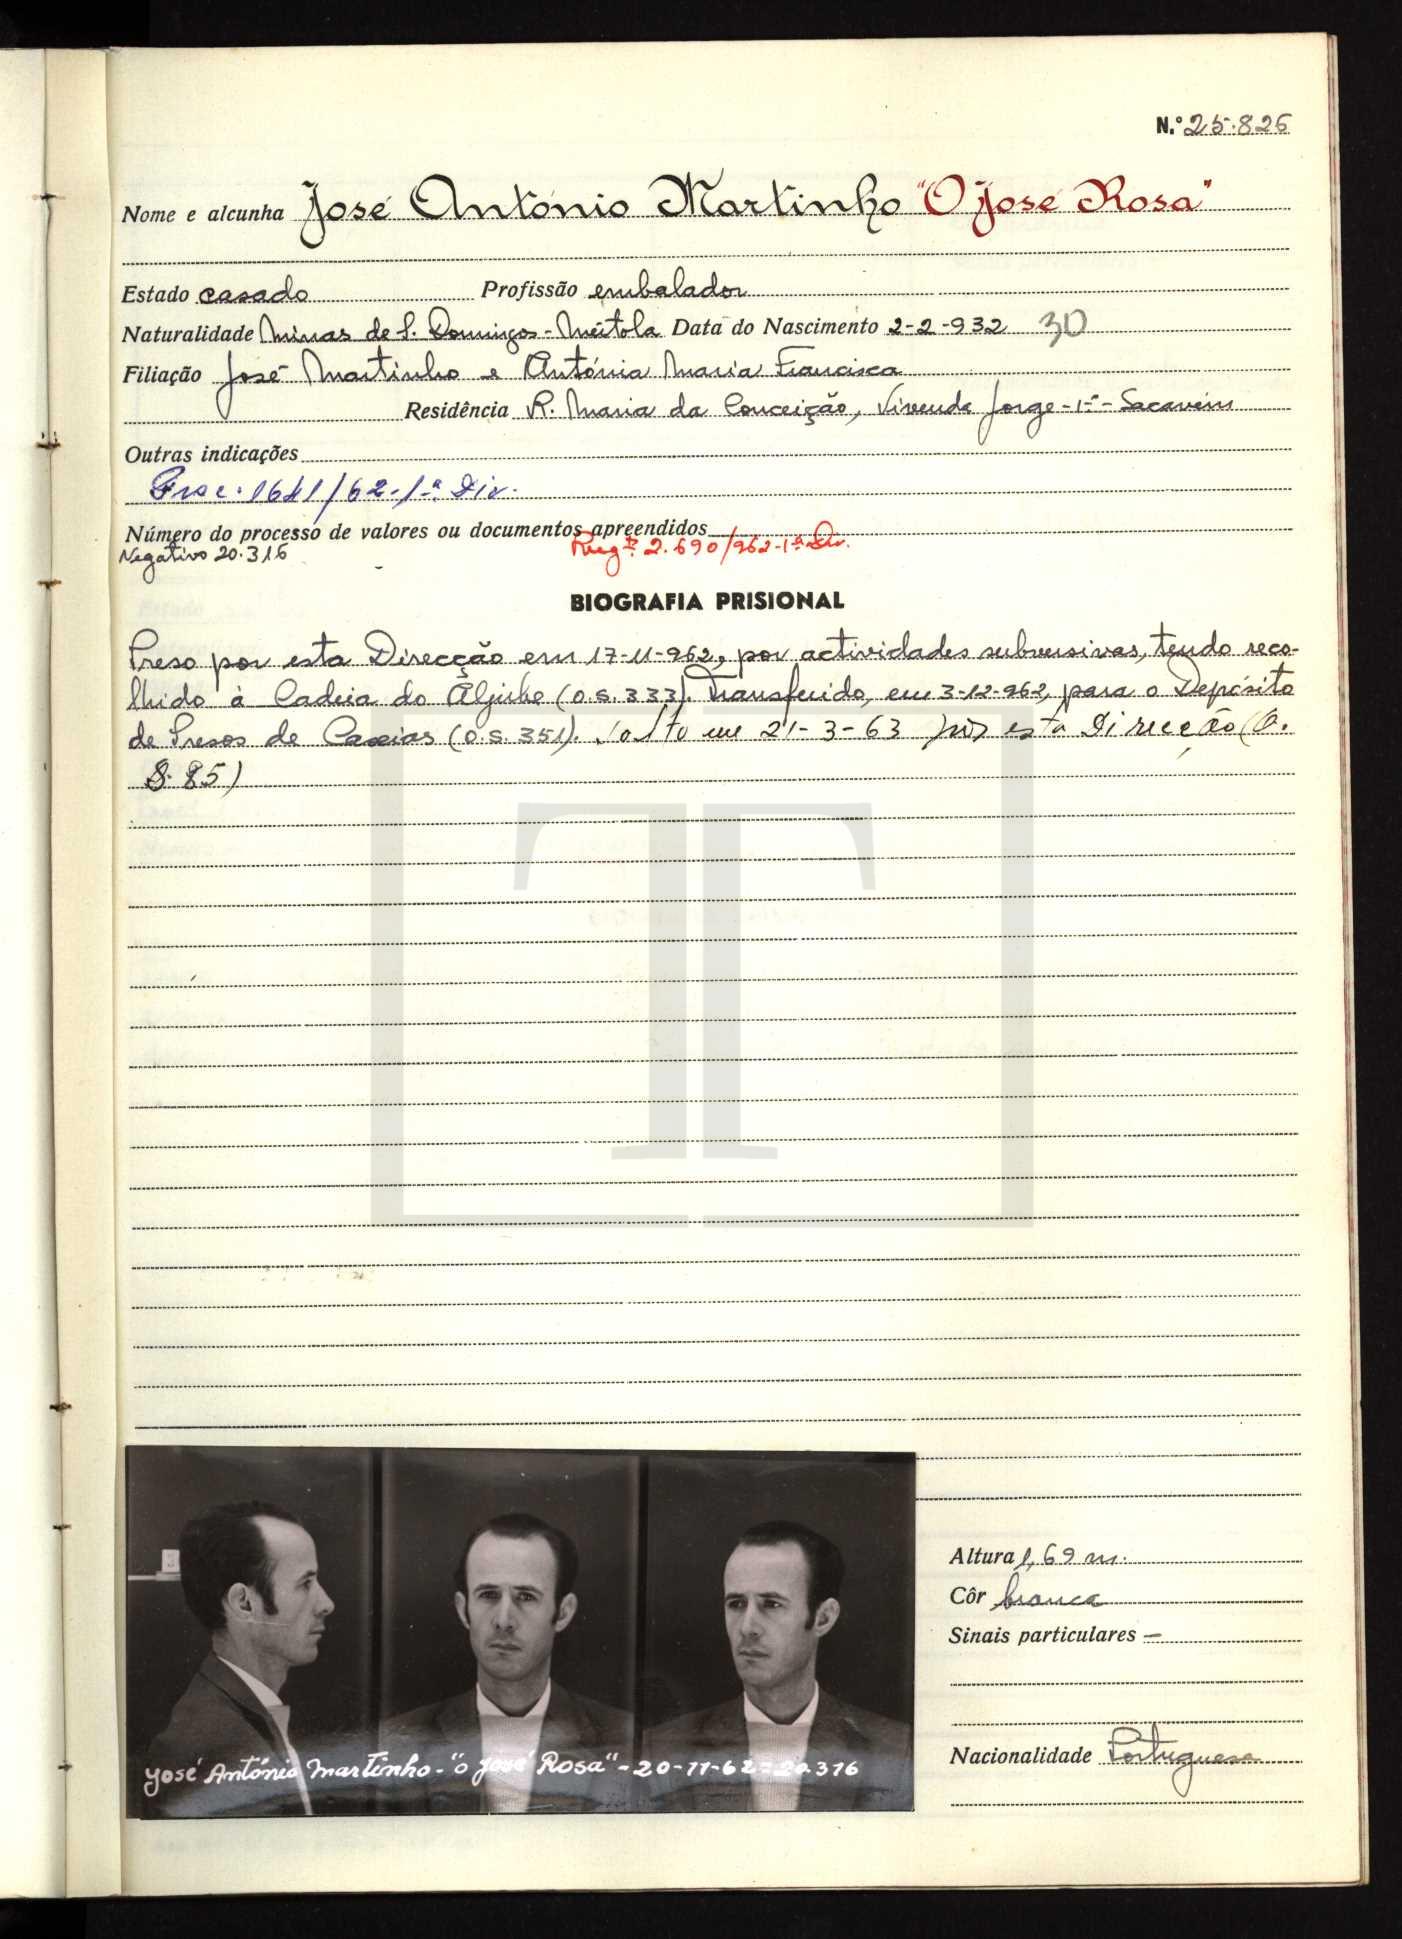 N.º 25.826
Nome e alcunha José António Martinho "O José Rosa"
Estado casado Profissão embalador
Naturalidade Minas de S. Domingos - Mértola Data do Nascimento 2-2-932 30
Filiação José Martinho e Antónia Maria Francisca
Residência R. Maria da Conceição, Vivenda Jorge-1º- Sacavém
Outras indicações
Proc. 1641/62-1ª Div.
Número do processo de valores ou documentos apreendidos
Negativo 20.316 Regº. 2.690/962-1ª Div.
BIOGRAFIA PRISIONAL
Preso por esta Direcção em 17-11-962, por actividades subversivas, tendo reco-
lhido à Cadeia do Aljube (O.S. 333). Transferido, em 3-12-962, para o Depósito
de Presos de Caxias (O.S. 351). Solto em 21-3-63 por esta Direcção (O.
S. 85)
Altura 1,69 m.
Côr branca
Sinais particulares —
Nacionalidade Portuguesa
José António Martinho - "o José Rosa" - 20-11-62 = 20.316